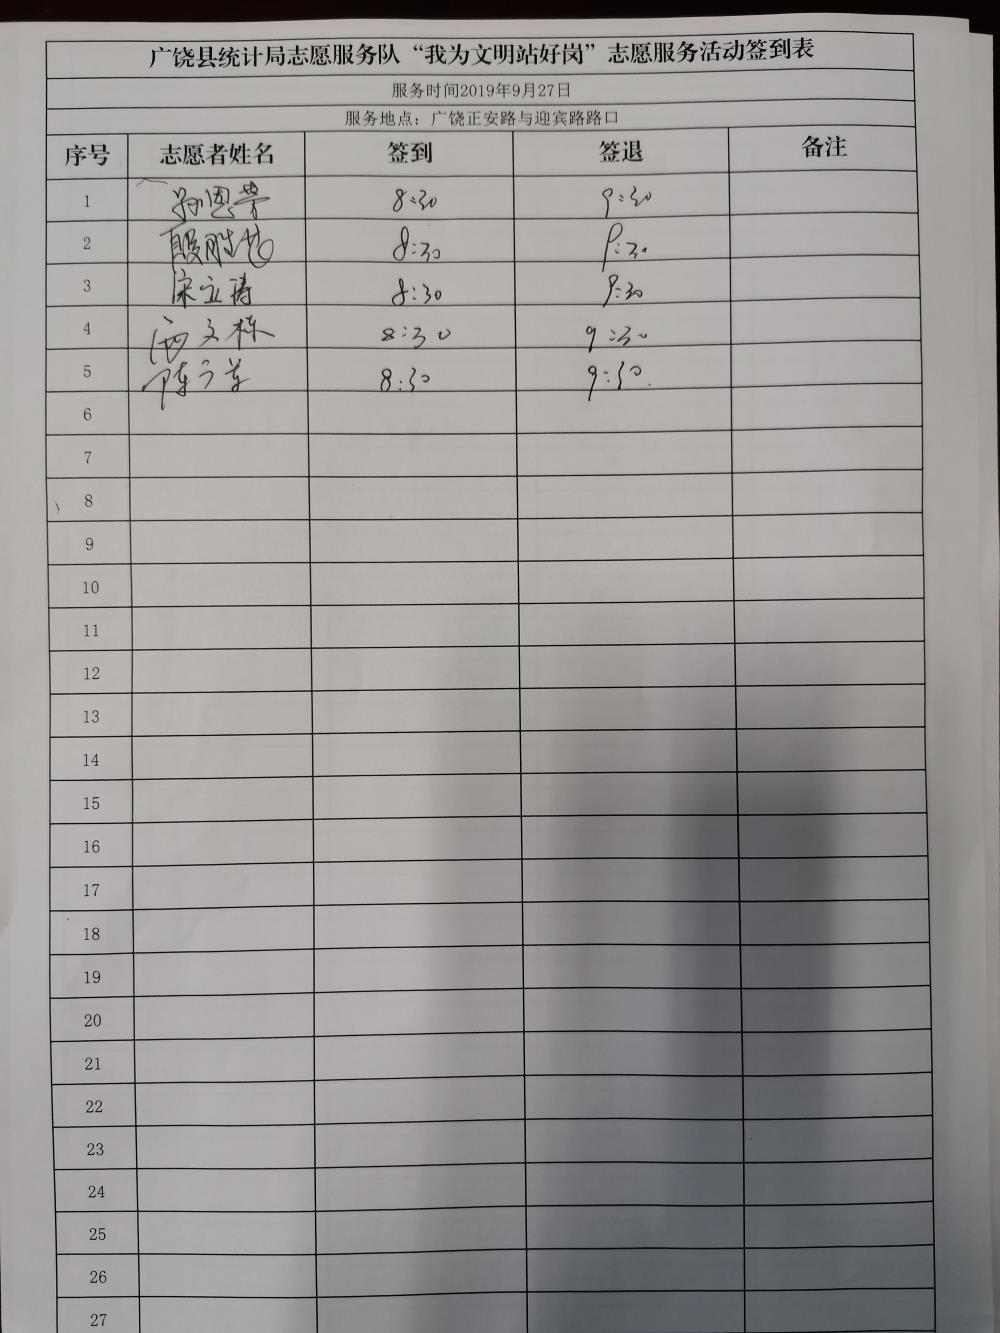 广饶县统计局志愿服务队“我为文明站好岗”志愿服务活动签到表
服务时间2019年9月27日
服务地点：广饶正安路与迎宾路路口
序号 志愿者姓名 签到 签退 备注
1 孙恩荣 8:30 9:30
2 8:30 9:30
3 宋立涛 8:30 9:30
4 文栋 8:30 9:30
5 陈 8:30 9:30
6
7
8
9
10
11
12
13
14
15
16
17
18
19
20
21
22
23
24
25
26
27